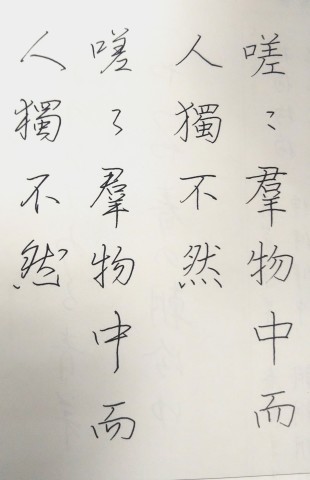 嗟〻羣物中而
人獨不然
嗟〻羣物中而
人獨不然